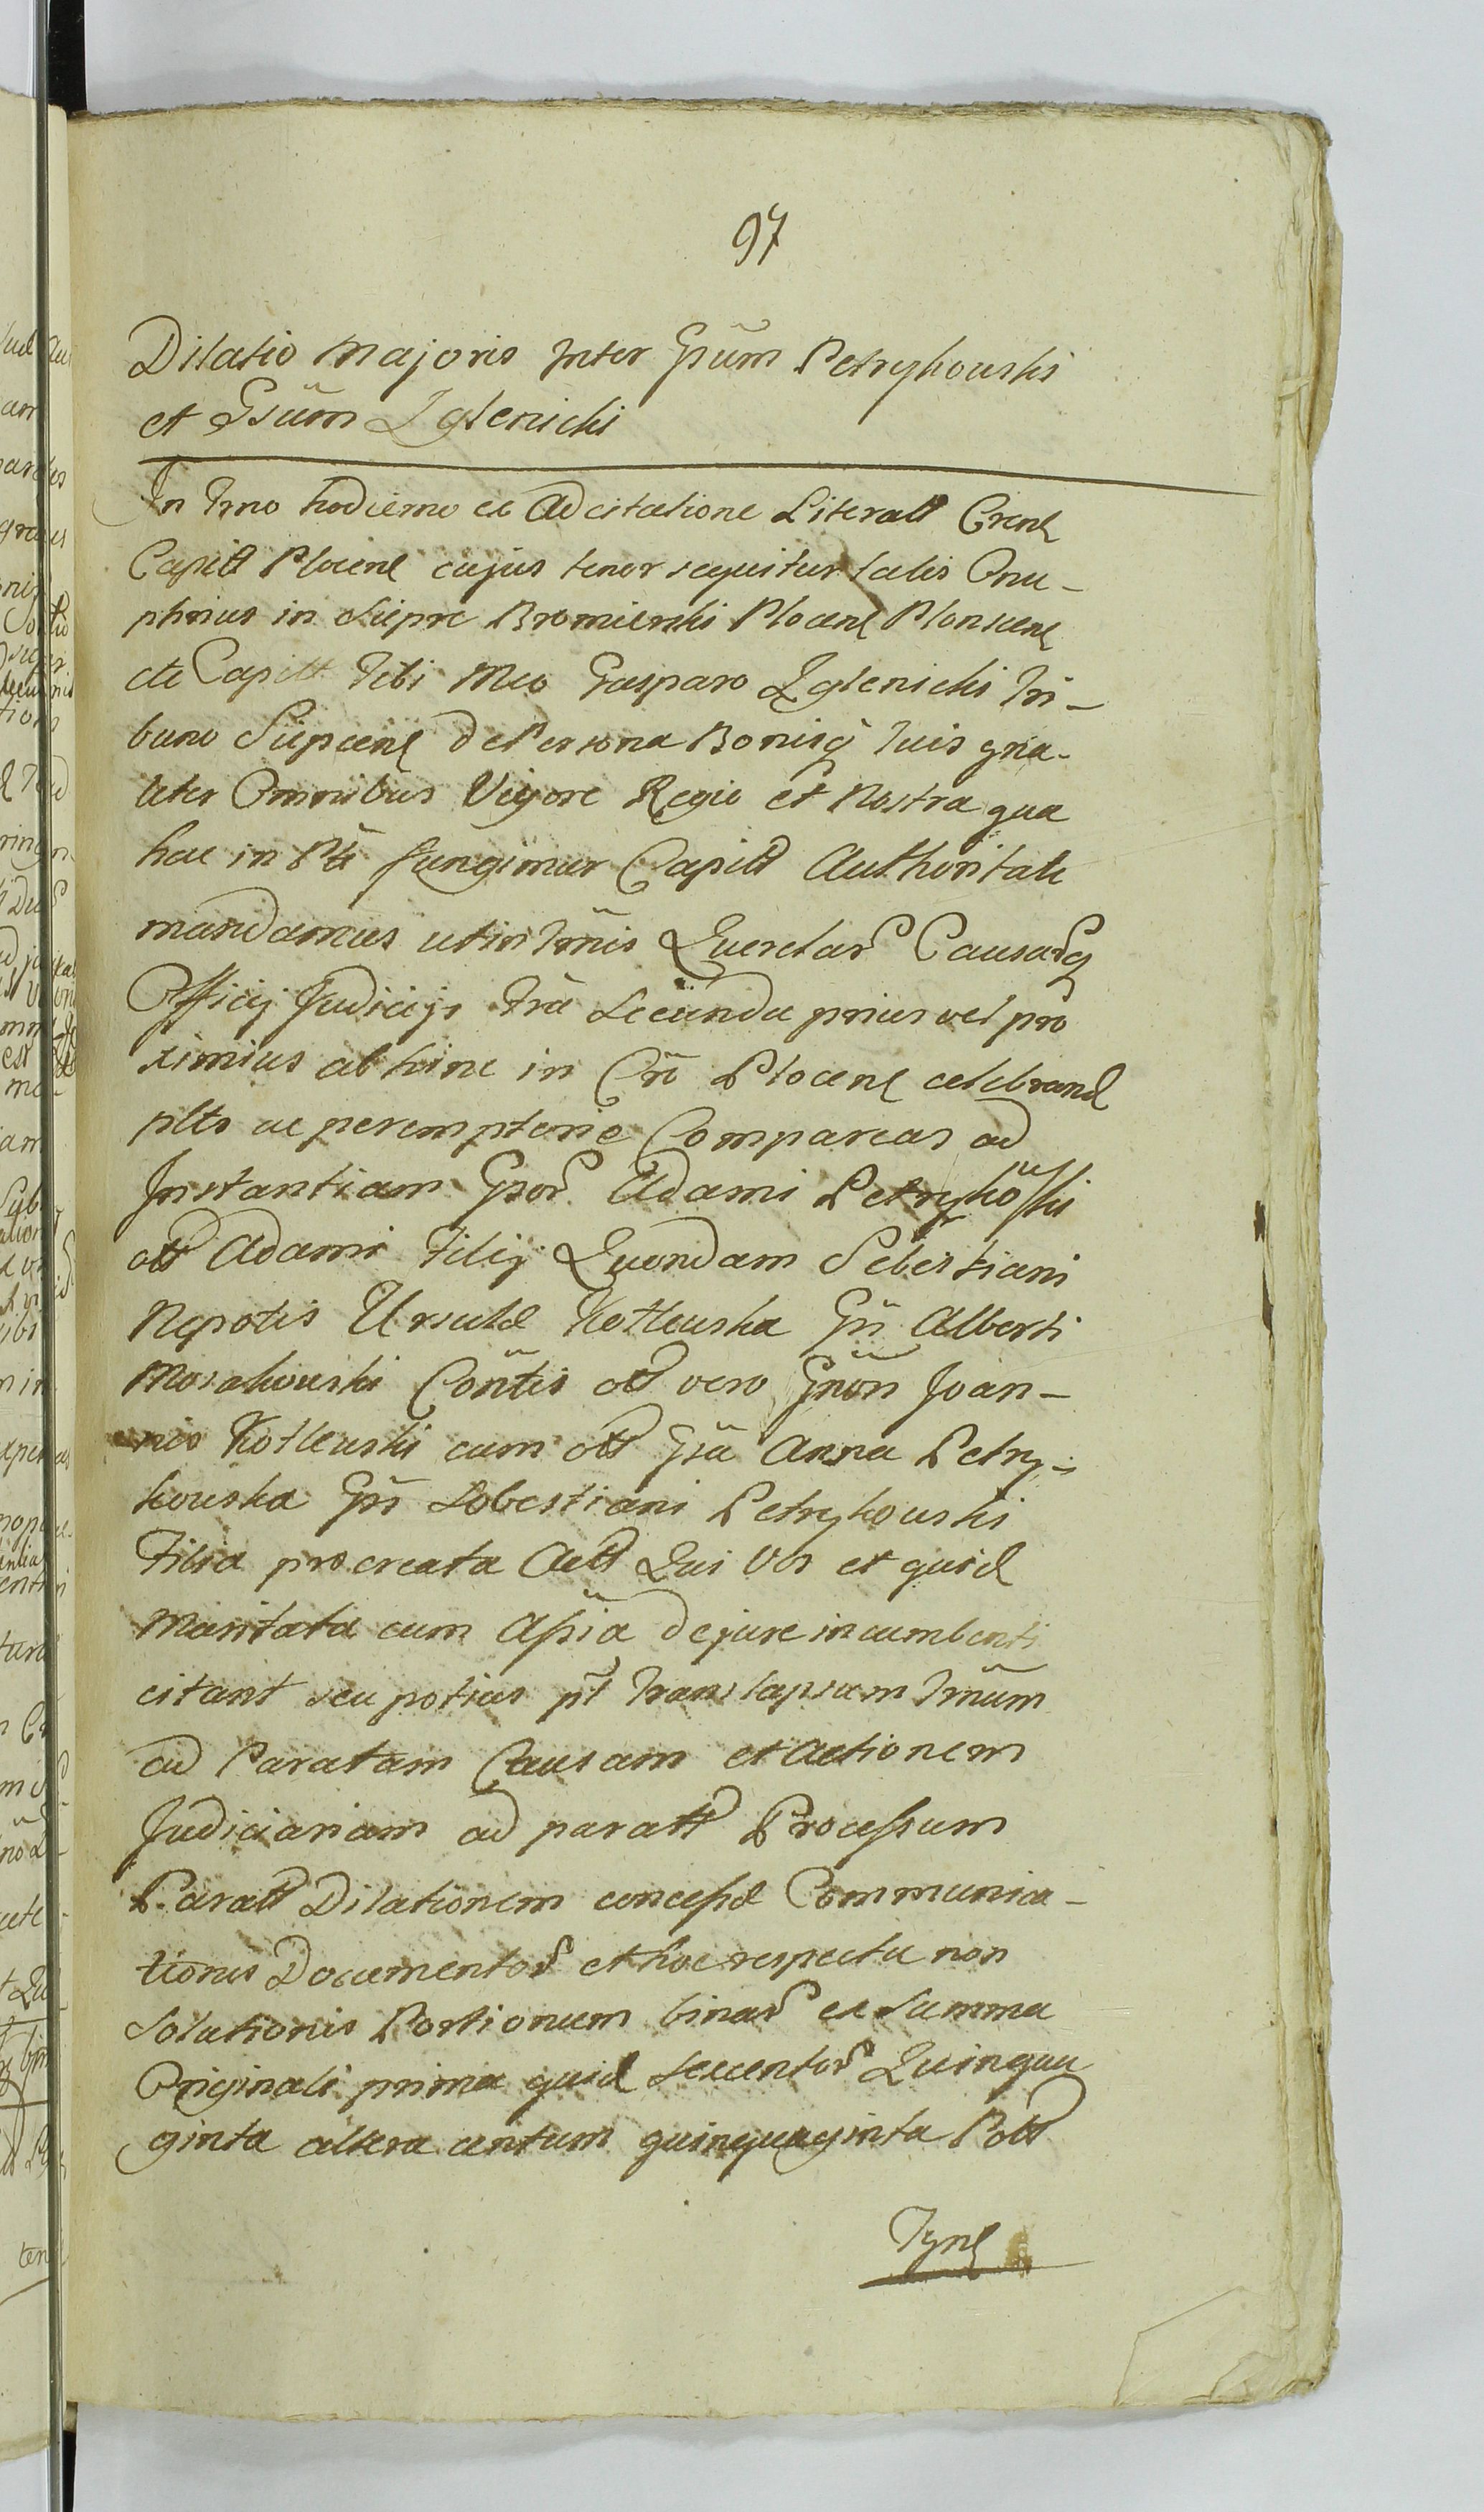 97
Dilatio Majoris Inter Gsum̃ Petrykowski
et Gsum̃ Zglenicki
In Tmo hodierno ex Adcitatione Literali Crens
Capitt Plocens cujus tenor sequitur talis Onu-
phrius in Siepre Bromierski Plocens Plonscens
etc Capitt Tibi Mco Gasparo Zglenicki Tri-
buno Siepcens de Persona Bonisq̃ Tuis gna-
liter Omnibus Vigore Regio et Nostra qua
hac in Pte fungimur Capitt Authoritate
mandamus ut in Tmĩs Querelar Causarq
Officij Judicijs Tra Secunda prius vel pro
ximius ab hinc in Crõ Plocens celebrand
plts ac peremptorie Compareas ad
Instantiam Gsor Adami Petrykowski
ott Adami Filij Quondam Sebestiani
Nepotis Ursula Kotleuska Gsi Alberti
Morakowski Con̄tis ott vero Gnõn Joan-
nis Kotleuski cum ott Gsã Anna Petry-
kowska Gsi Sobestiani Petrykouski
Filia procreata Actt Qui Vos et quid
Maritata cum Assĩa de jure incumbenti
citant seu potius pt̃ Translapsum Tmũm
ad Paratam Causam et Actionem
Judiciariam ad paratt Processum
Paratt Dilationem concessæ Communica-
tionis Documentor et hoc respectu non
Solutionis Portionum binar ex Summa
Originali prima quid Sexcentor Quinqua
ginta altera centum quinquaginta Polt
Tyns